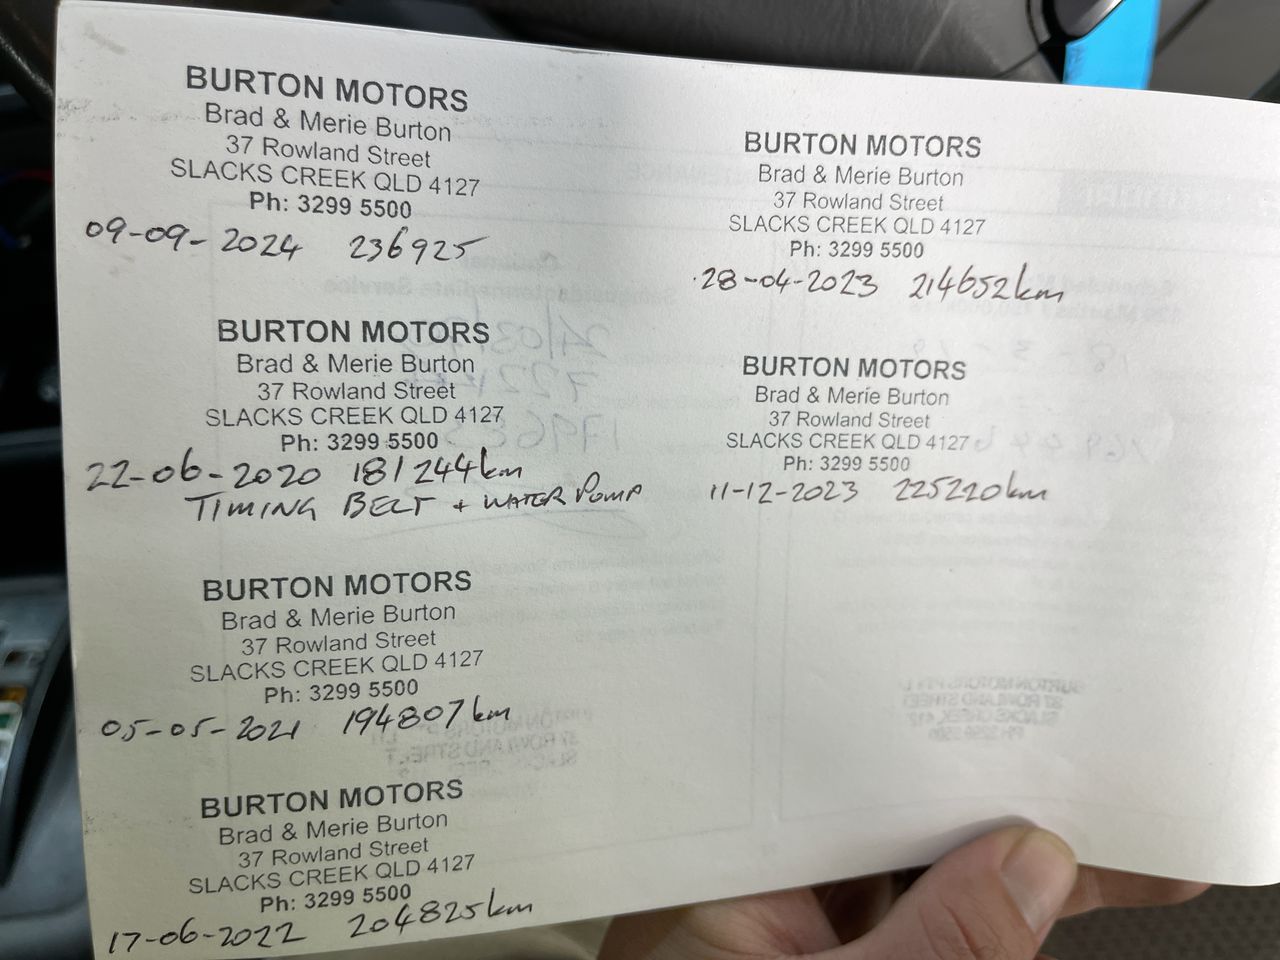 BURTON MOTORS
Brad & Merie Burton
37 Rowland Street
SLACKS CREEK QLD 4127
Ph: 3299 5500
09-09-2024 236925
BURTON MOTORS
Brad & Merie Burton
37 Rowland Street
SLACKS CREEK QLD 4127
Ph: 3299 5500
22-06-2020 181244km
TIMING BELT + WATER PUMP
BURTON MOTORS
Brad & Merie Burton
37 Rowland Street
SLACKS CREEK QLD 4127
Ph: 3299 5500
05-05-2021 194807km
BURTON MOTORS
Brad & Merie Burton
37 Rowland Street
SLACKS CREEK QLD 4127
Ph: 3299 5500
17-06-2022 204825km
BURTON MOTORS
Brad & Merie Burton
37 Rowland Street
SLACKS CREEK QLD 4127
Ph: 3299 5500
28-04-2023 214652km
BURTON MOTORS
Brad & Merie Burton
37 Rowland Street
SLACKS CREEK QLD 4127
Ph: 3299 5500
11-12-2023 225220km